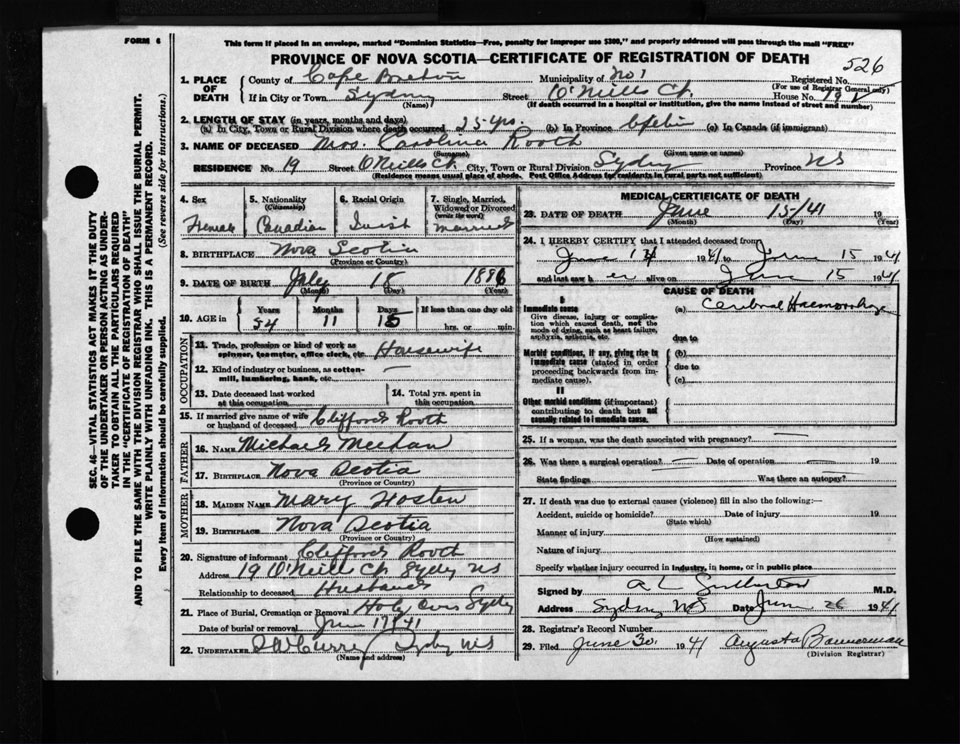 FORM 4
This form if placed in an envelope, marked "Dominion Statistics—Free, penalty for improper use $300," and properly addressed will pass through the mail "FREE"
PROVINCE OF NOVA SCOTIA—CERTIFICATE OF REGISTRATION OF DEATH
526
1. PLACE OF DEATH
County of Cape Breton Municipality of No 1 Registered No.
(For use of Registrar General only)
If in City or Town Sydney Street O'Neills Ct. House No. 19
(Name) (If death occurred in a hospital or institution, give the name instead of street and number)
2. LENGTH OF STAY (in years, months and days)
(a) In City, Town or Rural Division where death occurred 25 yrs. (b) In Province Life (c) In Canada (if immigrant)
3. NAME OF DECEASED Mrs. Carolina Rooth
(Surname) (Given name or names)
RESIDENCE No. 19 Street O'Neills Ct. City, Town or Rural Division Sydney Province NS
(Residence means usual place of abode. Post Office Address for residents in rural parts not sufficient)
4. Sex Female
5. Nationality (Citizenship) Canadian
6. Racial Origin
7. Single, Married, Widowed or Divorced (write the word) Married
8. BIRTHPLACE Nova Scotia
(Province or Country)
9. DATE OF BIRTH July 18 1886
(Month) (Day) (Year)
10. AGE in Years Months Days If less than one day old
54 11 hrs. or min.
OCCUPATION
11. Trade, profession or kind of work as spinner, teamster, office clerk, etc. Housewife
12. Kind of industry or business, as cotton-mill, lumbering, bank, etc. —
13. Date deceased last worked at this occupation
14. Total yrs. spent in this occupation
15. If married give name of wife or husband of deceased Clifford Rooth
FATHER
16. NAME Michael Meehan
17. BIRTHPLACE Nova Scotia
(Province or Country)
MOTHER
18. MAIDEN NAME Mary Hosten
19. BIRTHPLACE Nova Scotia
(Province or Country)
20. Signature of informant Clifford Rooth
Address 19 O'Neills Ct. Sydney NS
Relationship to deceased Husband
21. Place of Burial, Cremation or Removal Holy Cross Sydney
Date of burial or removal June 17 41
22. UNDERTAKER Curry Sydney NS
(Name and address)
MEDICAL CERTIFICATE OF DEATH
23. DATE OF DEATH June 15/41 19
(Month) (Day) (Year)
24. I HEREBY CERTIFY that I attended deceased from
June 14 1941 to June 15 1941
and last saw h er alive on June 15 1941
CAUSE OF DEATH
I
Immediate cause (a) Cerebral Haemorrhage
Give disease, injury or complication which caused death, not the mode of dying, such as heart failure, asphyxia, asthenia, etc.
due to
Morbid conditions, if any, giving rise to immediate cause (stated in order proceeding backwards from immediate cause).
(b)
due to
(c)
II
Other morbid conditions (if important) contributing to death but not causally related to immediate cause.
25. If a woman, was the death associated with pregnancy? —
26. Was there a surgical operation? — Date of operation — 19
State findings Was there an autopsy?
27. If death was due to external causes (violence) fill in also the following:—
Accident, suicide or homicide? Date of injury 19
(State which)
Manner of injury
(How sustained)
Nature of injury
Specify whether injury occurred in industry, in home, or in public place
Signed by A L Sutherland M.D.
Address Sydney NS Date June 26 1941
28. Registrar's Record Number
29. Filed June 30 1941 Augusta Bannerman
(Division Registrar)
SEC. 46—VITAL STATISTICS ACT MAKES IT THE DUTY
OF THE UNDERTAKER OR PERSON ACTING AS UNDER-
TAKER TO OBTAIN ALL THE PARTICULARS REQUIRED
IN THE "CERTIFICATE OF REGISTRATION OF DEATH"
AND TO FILE THE SAME WITH THE DIVISION REGISTRAR WHO SHALL ISSUE THE BURIAL PERMIT.
WRITE PLAINLY WITH UNFADING INK. THIS IS A PERMANENT RECORD.
Every item of information should be carefully supplied. (See reverse side for instructions.)